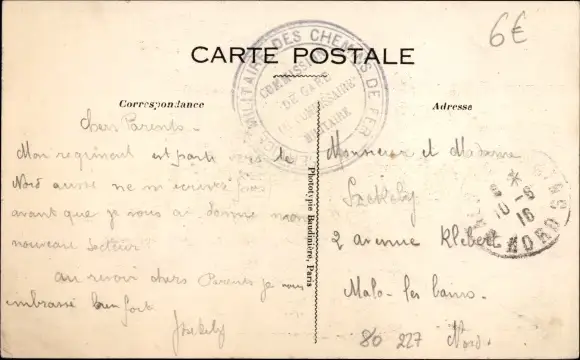 6€
CARTE POSTALE
MILITAIRE DES CHEMINS DE FER
COMMISSION
DE GARE
COMMISSAIRE
MILITAIRE
Correspondance
Chers Parents -
Mon regiment est parti vers le
Nord aussi ne m'ecrivez
avant que je vous ai donné mon
nouveau secteur
au revoir chers Parents je vous
embrasse bien fort
Szekely
Phototypie Baudinière, Paris
Adresse
Monsieur et Madame
Szekely
2 avenue Klébert
Malo-les bains-
Nord-
80 227
BAINS
*
10-6
16
NORD